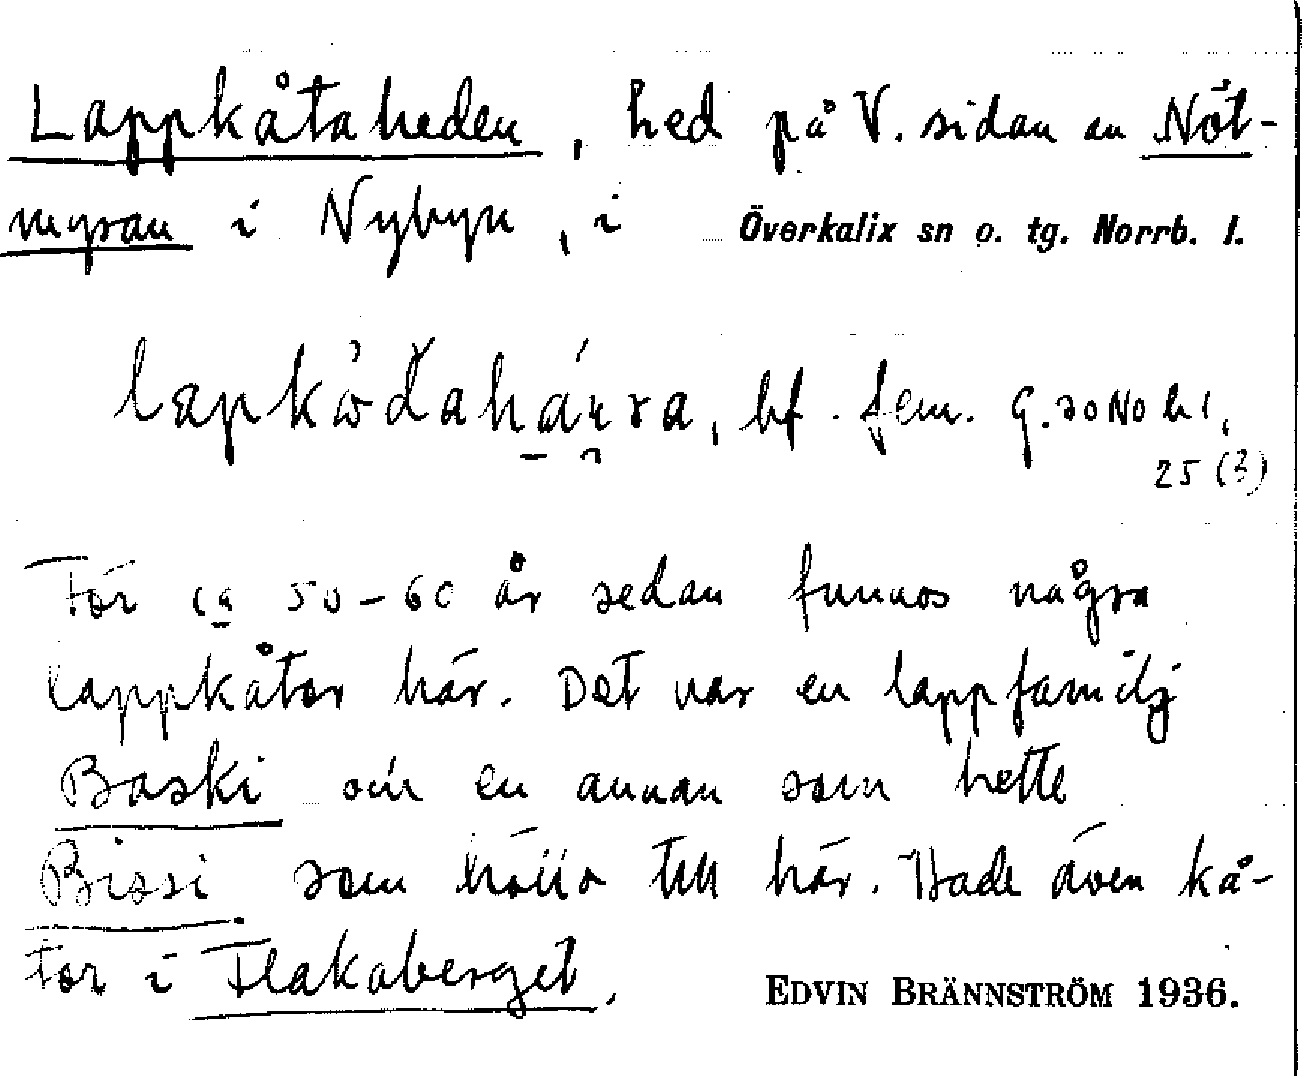 Lappkåtaheden, hed på V. sidan av Nöt-
myran i Nybyn, i Överkalix sn o. tg. Norrb. l.
bf. fem. G.
25 (3)
För ca 50-60 år sedan funnos några
lappkåtor här. Det var en lappfamilj
Baski och en annan som hette
Bissi som höllo till här. Hade även kå-
tor i Flakaberget.
EDVIN BRÄNNSTRÖM 1936.